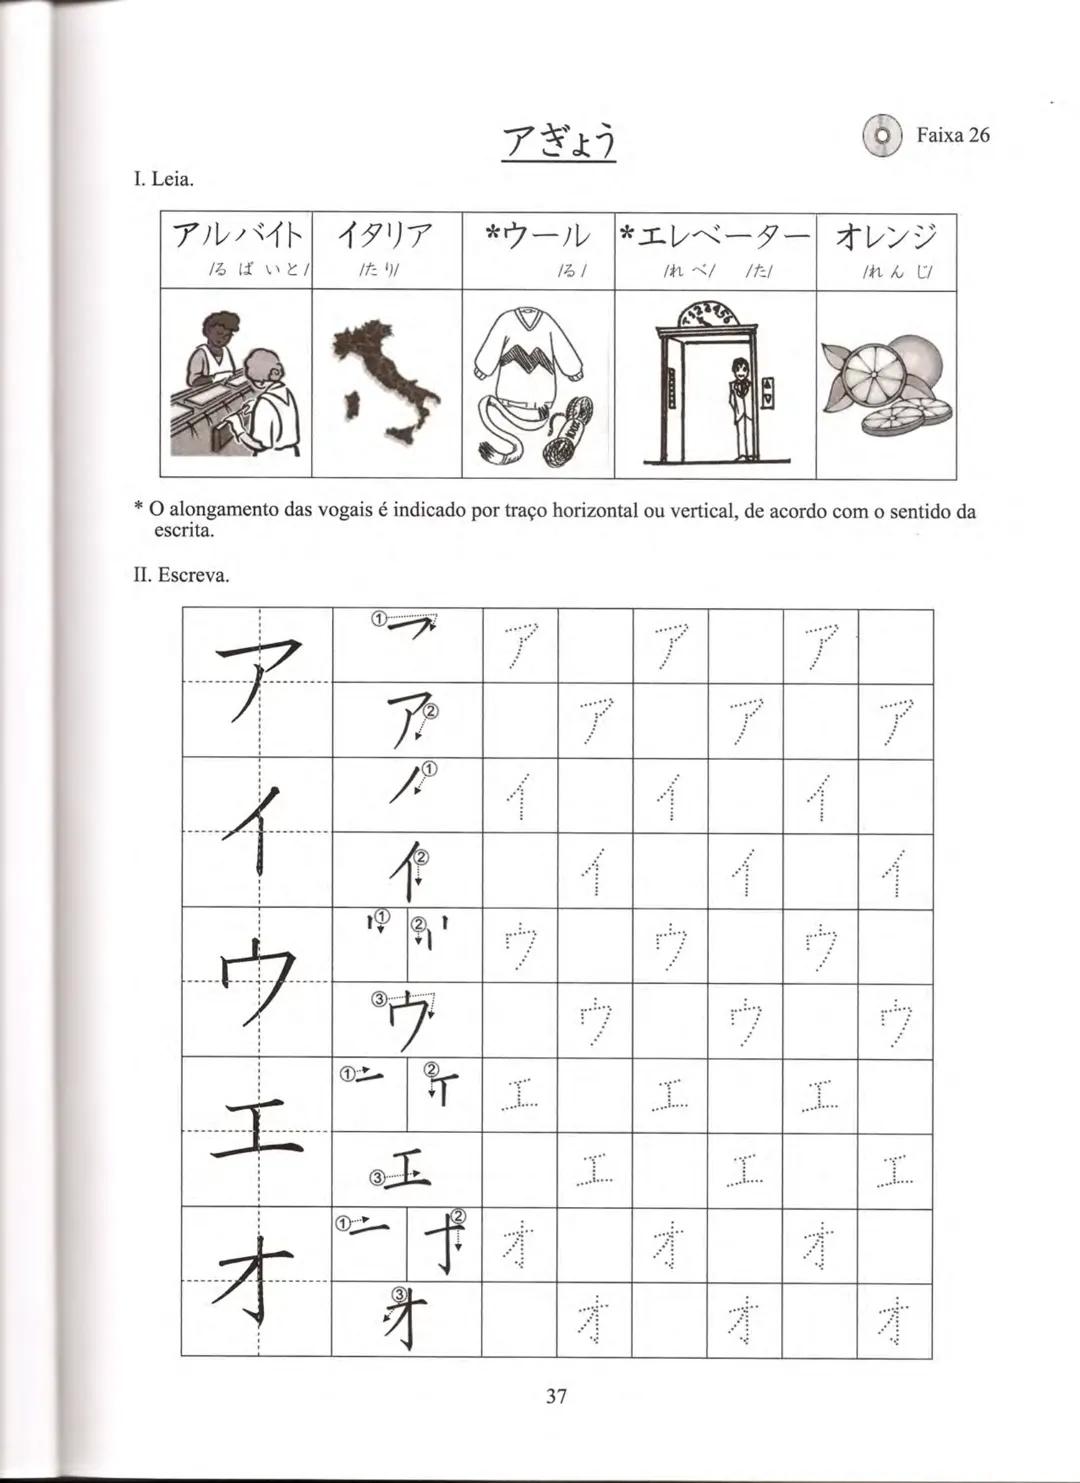 アぎょう
Faixa 26
I. Leia.
アルバイト イタリア *ウール *エレベーター オレンジ
/るばいと/ /たり/ /る/ /れべ/ /た/ /れんじ/
* O alongamento das vogais é indicado por traço horizontal ou vertical, de acordo com o sentida da
escrita.
II. Escreva.
ア ① ア ア ア
ア② ア ア ア
イ ① イ イ イ
イ② イ イ イ
ウ ① ② ウ ウ ウ
③ウ ウ ウ ウ
エ ① ② エ エ エ
③エ エ エ エ
オ ① ② オ オ オ
③オ オ オ オ
37